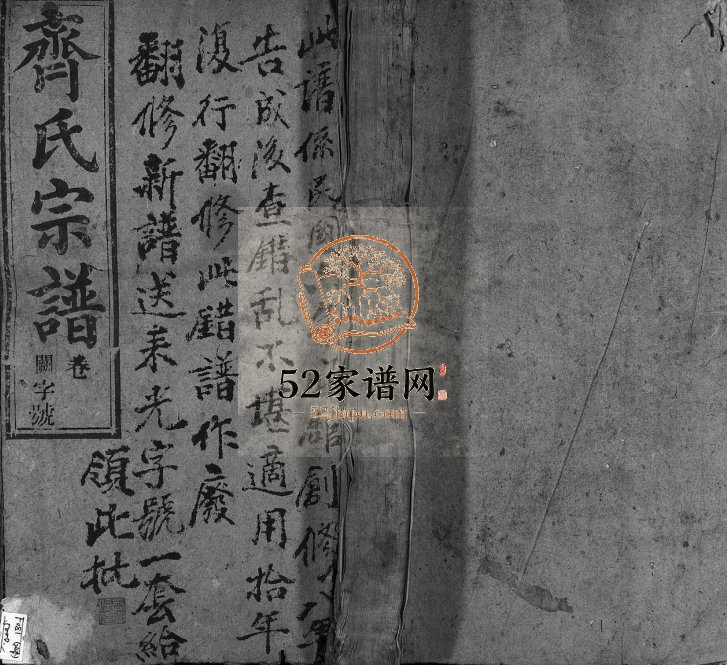 此譜係民國創修八年
告成後查錯乱不堪適用拾年
復行翻修此錯譜作廢
翻修新譜送来光字號一套給
領此批
齊氏宗譜
卷
關字號
52家谱网
52jiapu.com